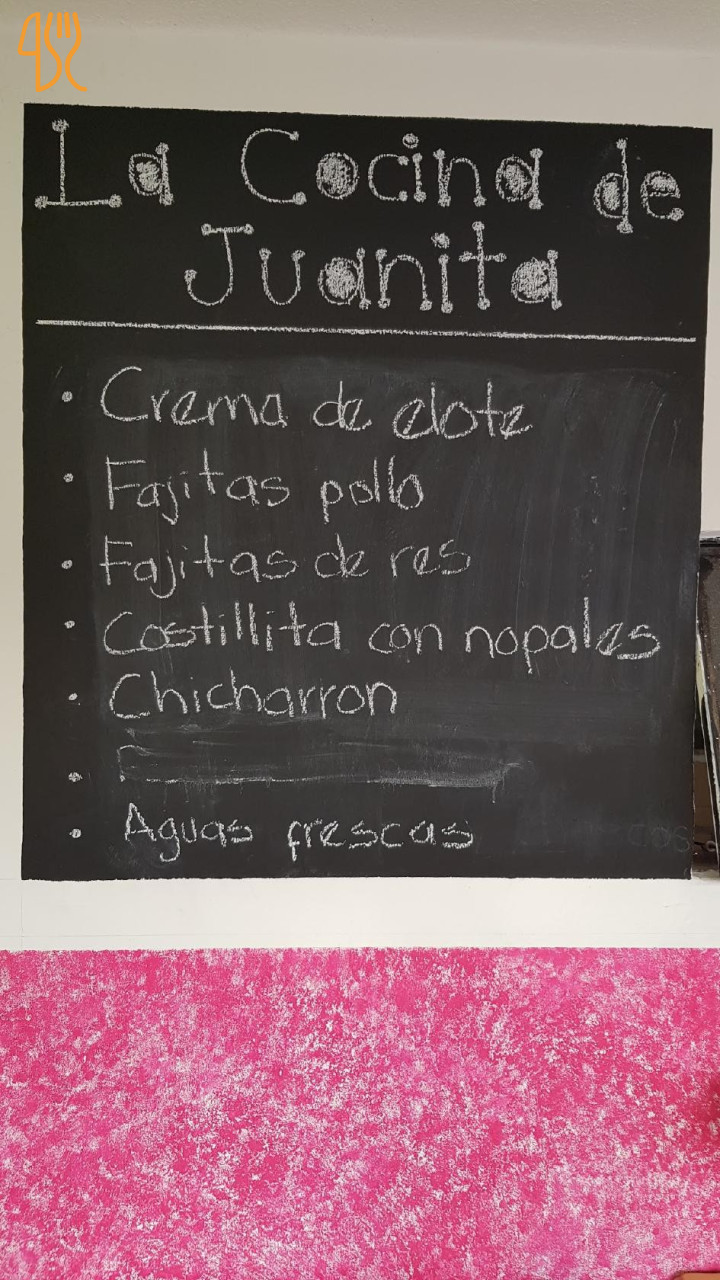 La Cocina de
Juanita
• Crema de elote
• Fajitas pollo
• Fajitas de res
• Costillita con nopales
• Chicharron
•
• Aguas frescas